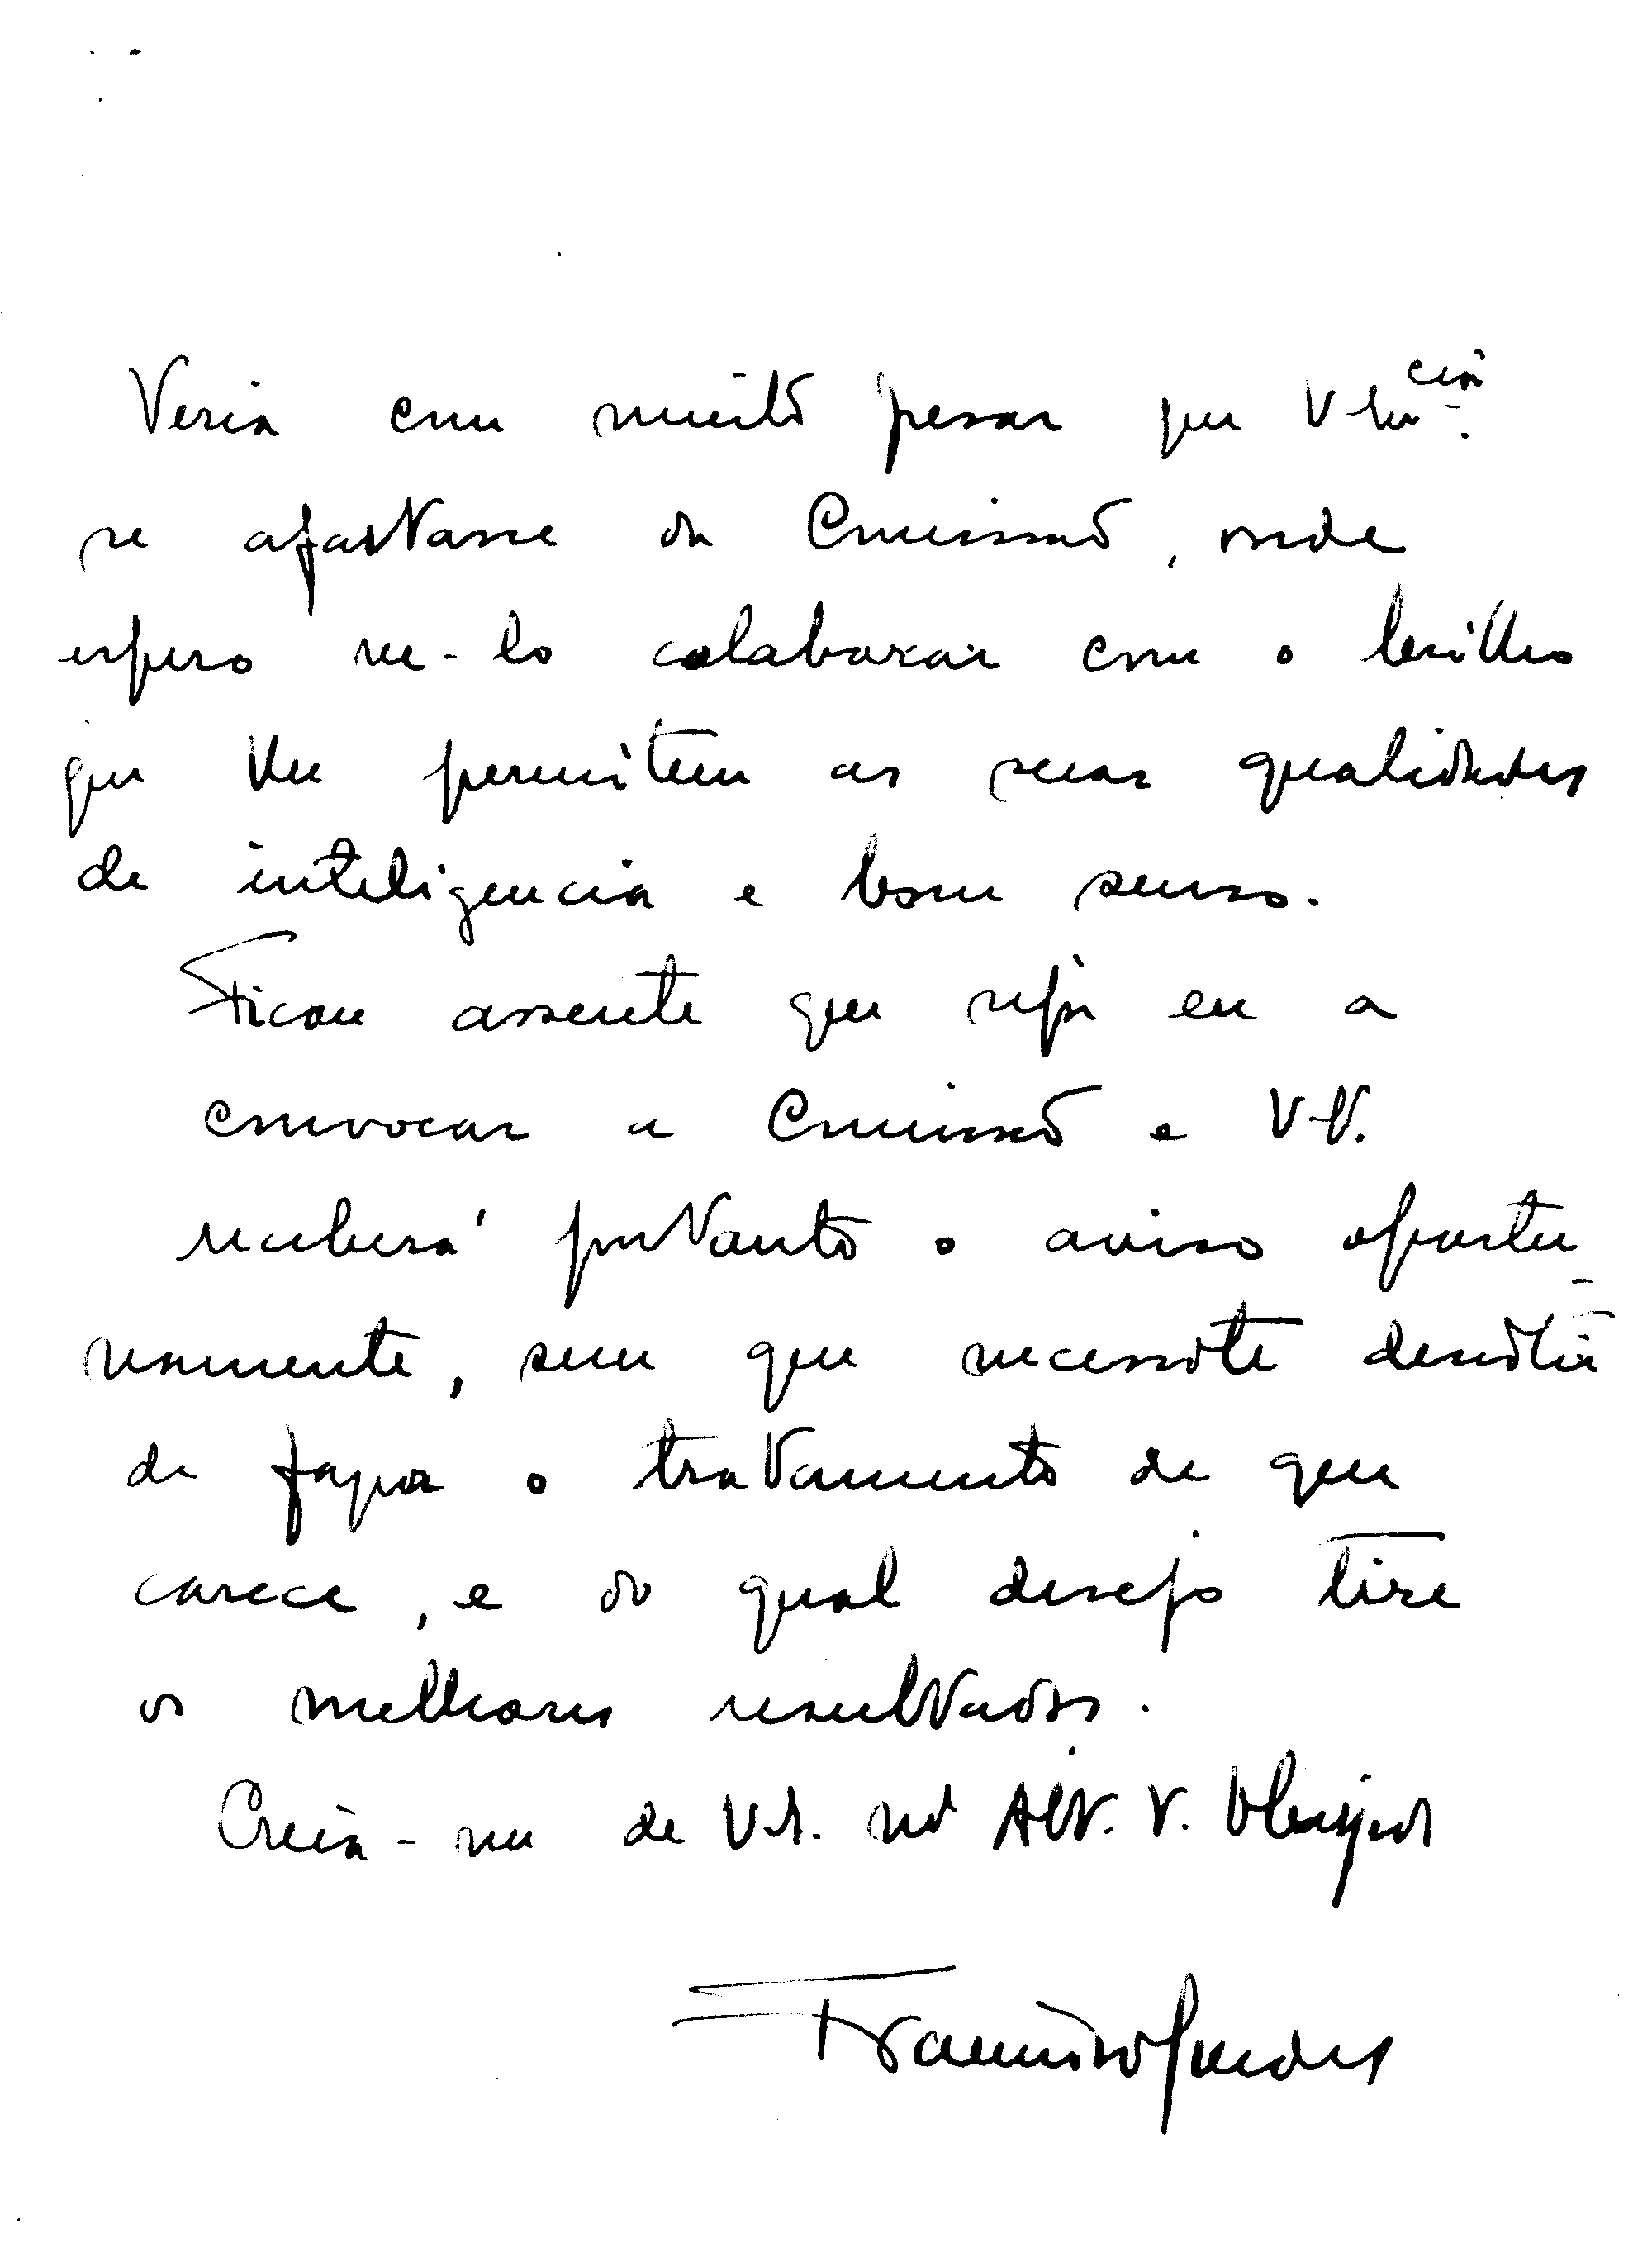 Veria com muito pesar que V Ex.cia
se afastasse da Comissão, onde
espero ve-lo colaborar com o brilho
que lhe permitem as suas qualidades
de inteligencia e bom senso.
Ficou assente que seja eu a
convocar a Comissão e V.
receberá portanto o aviso oportu
namente, sem que necessite
de fazer o tratamento de que
carece, e do qual desejo tire
os melhores resultados.
Creia-me de V. Att. V.
Francisco Guedes